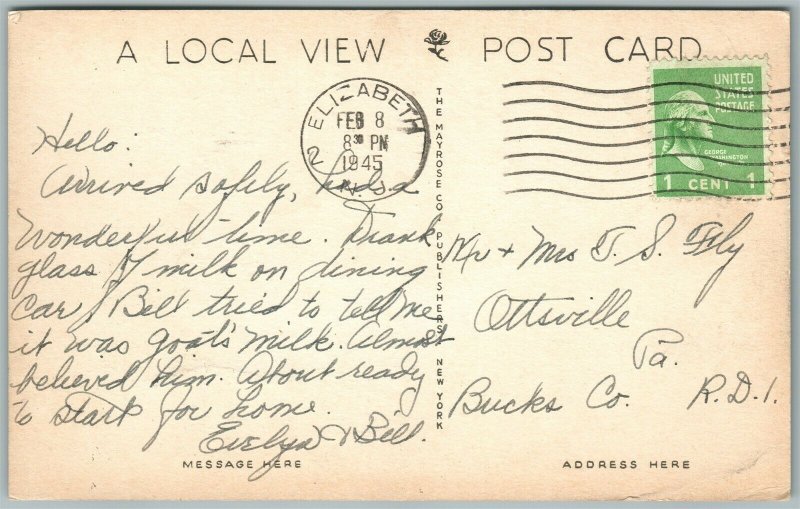 A LOCAL VIEW POST CARD
ELIZABETH
FEB 8
8 30 PM
1945
2 N.J.
UNITED
STATES
POSTAGE
GEORGE
WASHINGTON
1 CENT 1
Hello:
Arrived safely, had a
wonderful time. Drank
glass of milk on dining
car, Bill tried to tell me
it was goat's milk. Almost
believed him. About ready
to start for home.
Evelyn & Bill.
MESSAGE HERE
THE MAYROSE CO. PUBLISHERS NEW YORK
Mr + Mrs T. S. Fly
Ottsville
Pa.
Bucks Co. R.D.1.
ADDRESS HERE